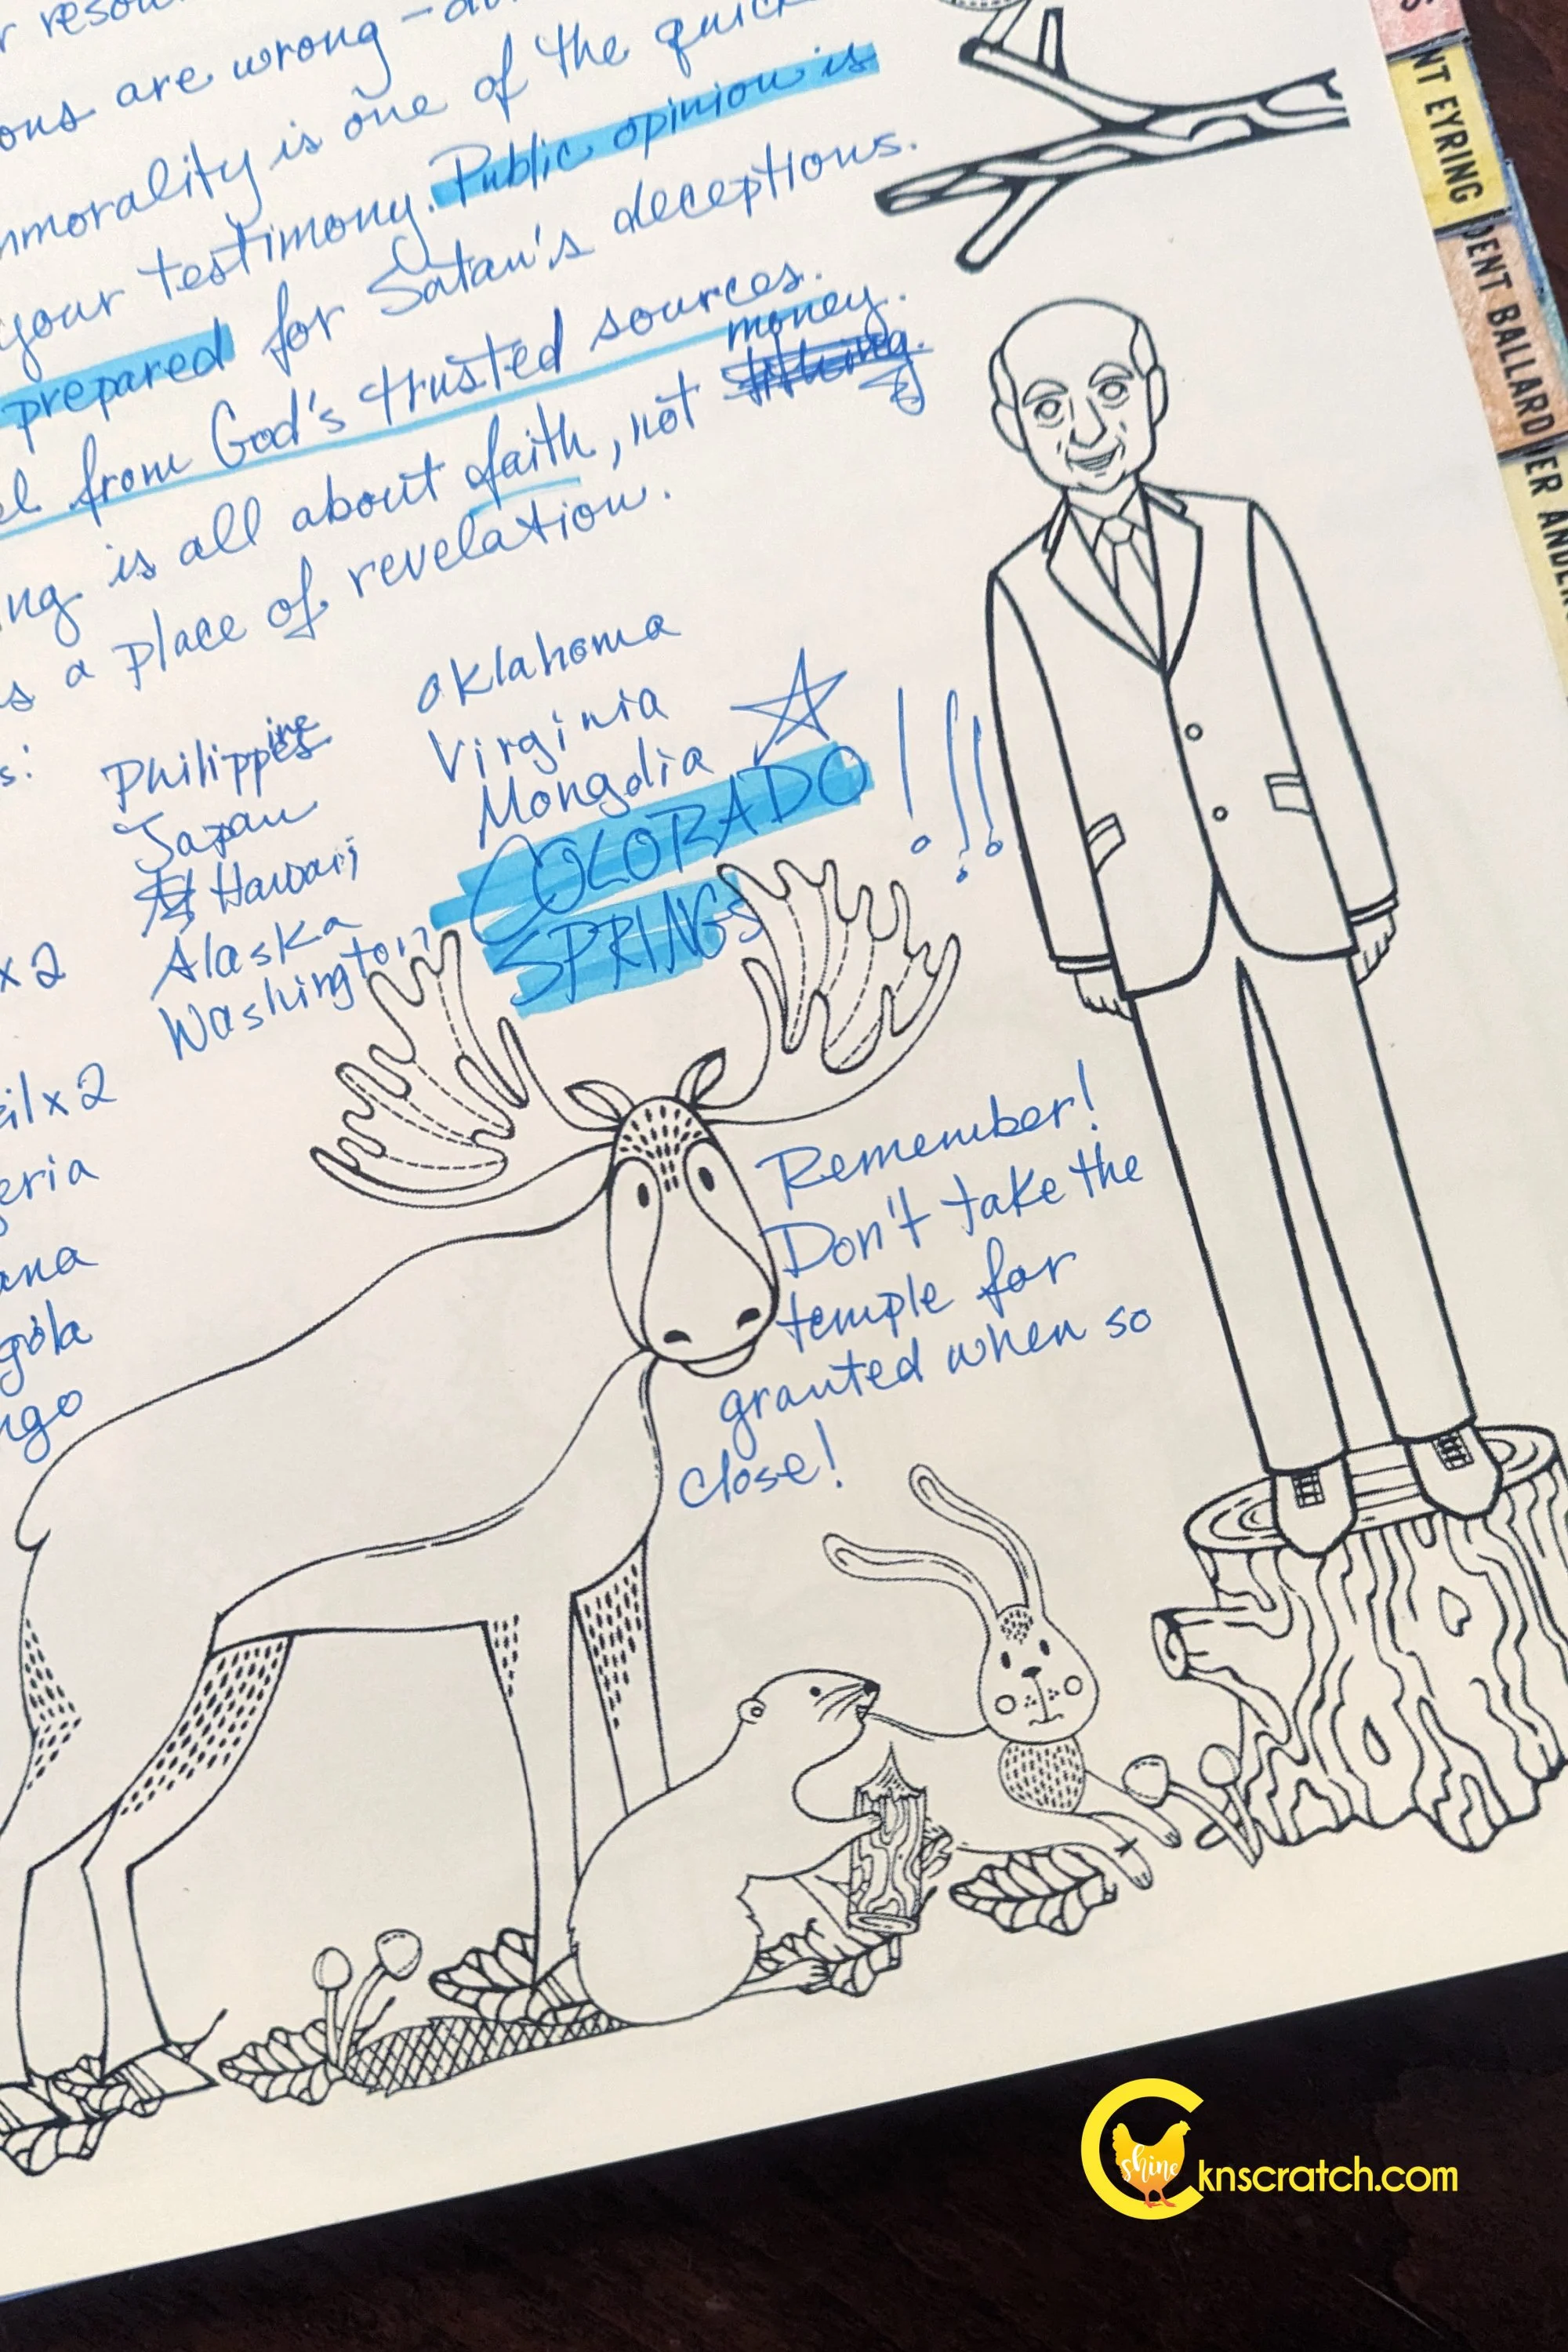 are wrong
is one of the
your testimony. Public opinion is
prepared for Satan's deceptions.
from God's trusted sources.
is all about faith, not money.
a place of revelation.
Philippine
Japan
Hawaii
Alaska
Washington
Oklahoma
Virginia
Mongolia
COLORADO !!!
SPRINGS
x2
x2
Remember!
Don't take the
temple for
granted when so
close!
EYRING
BALLARD
shine
Cknscratch.com